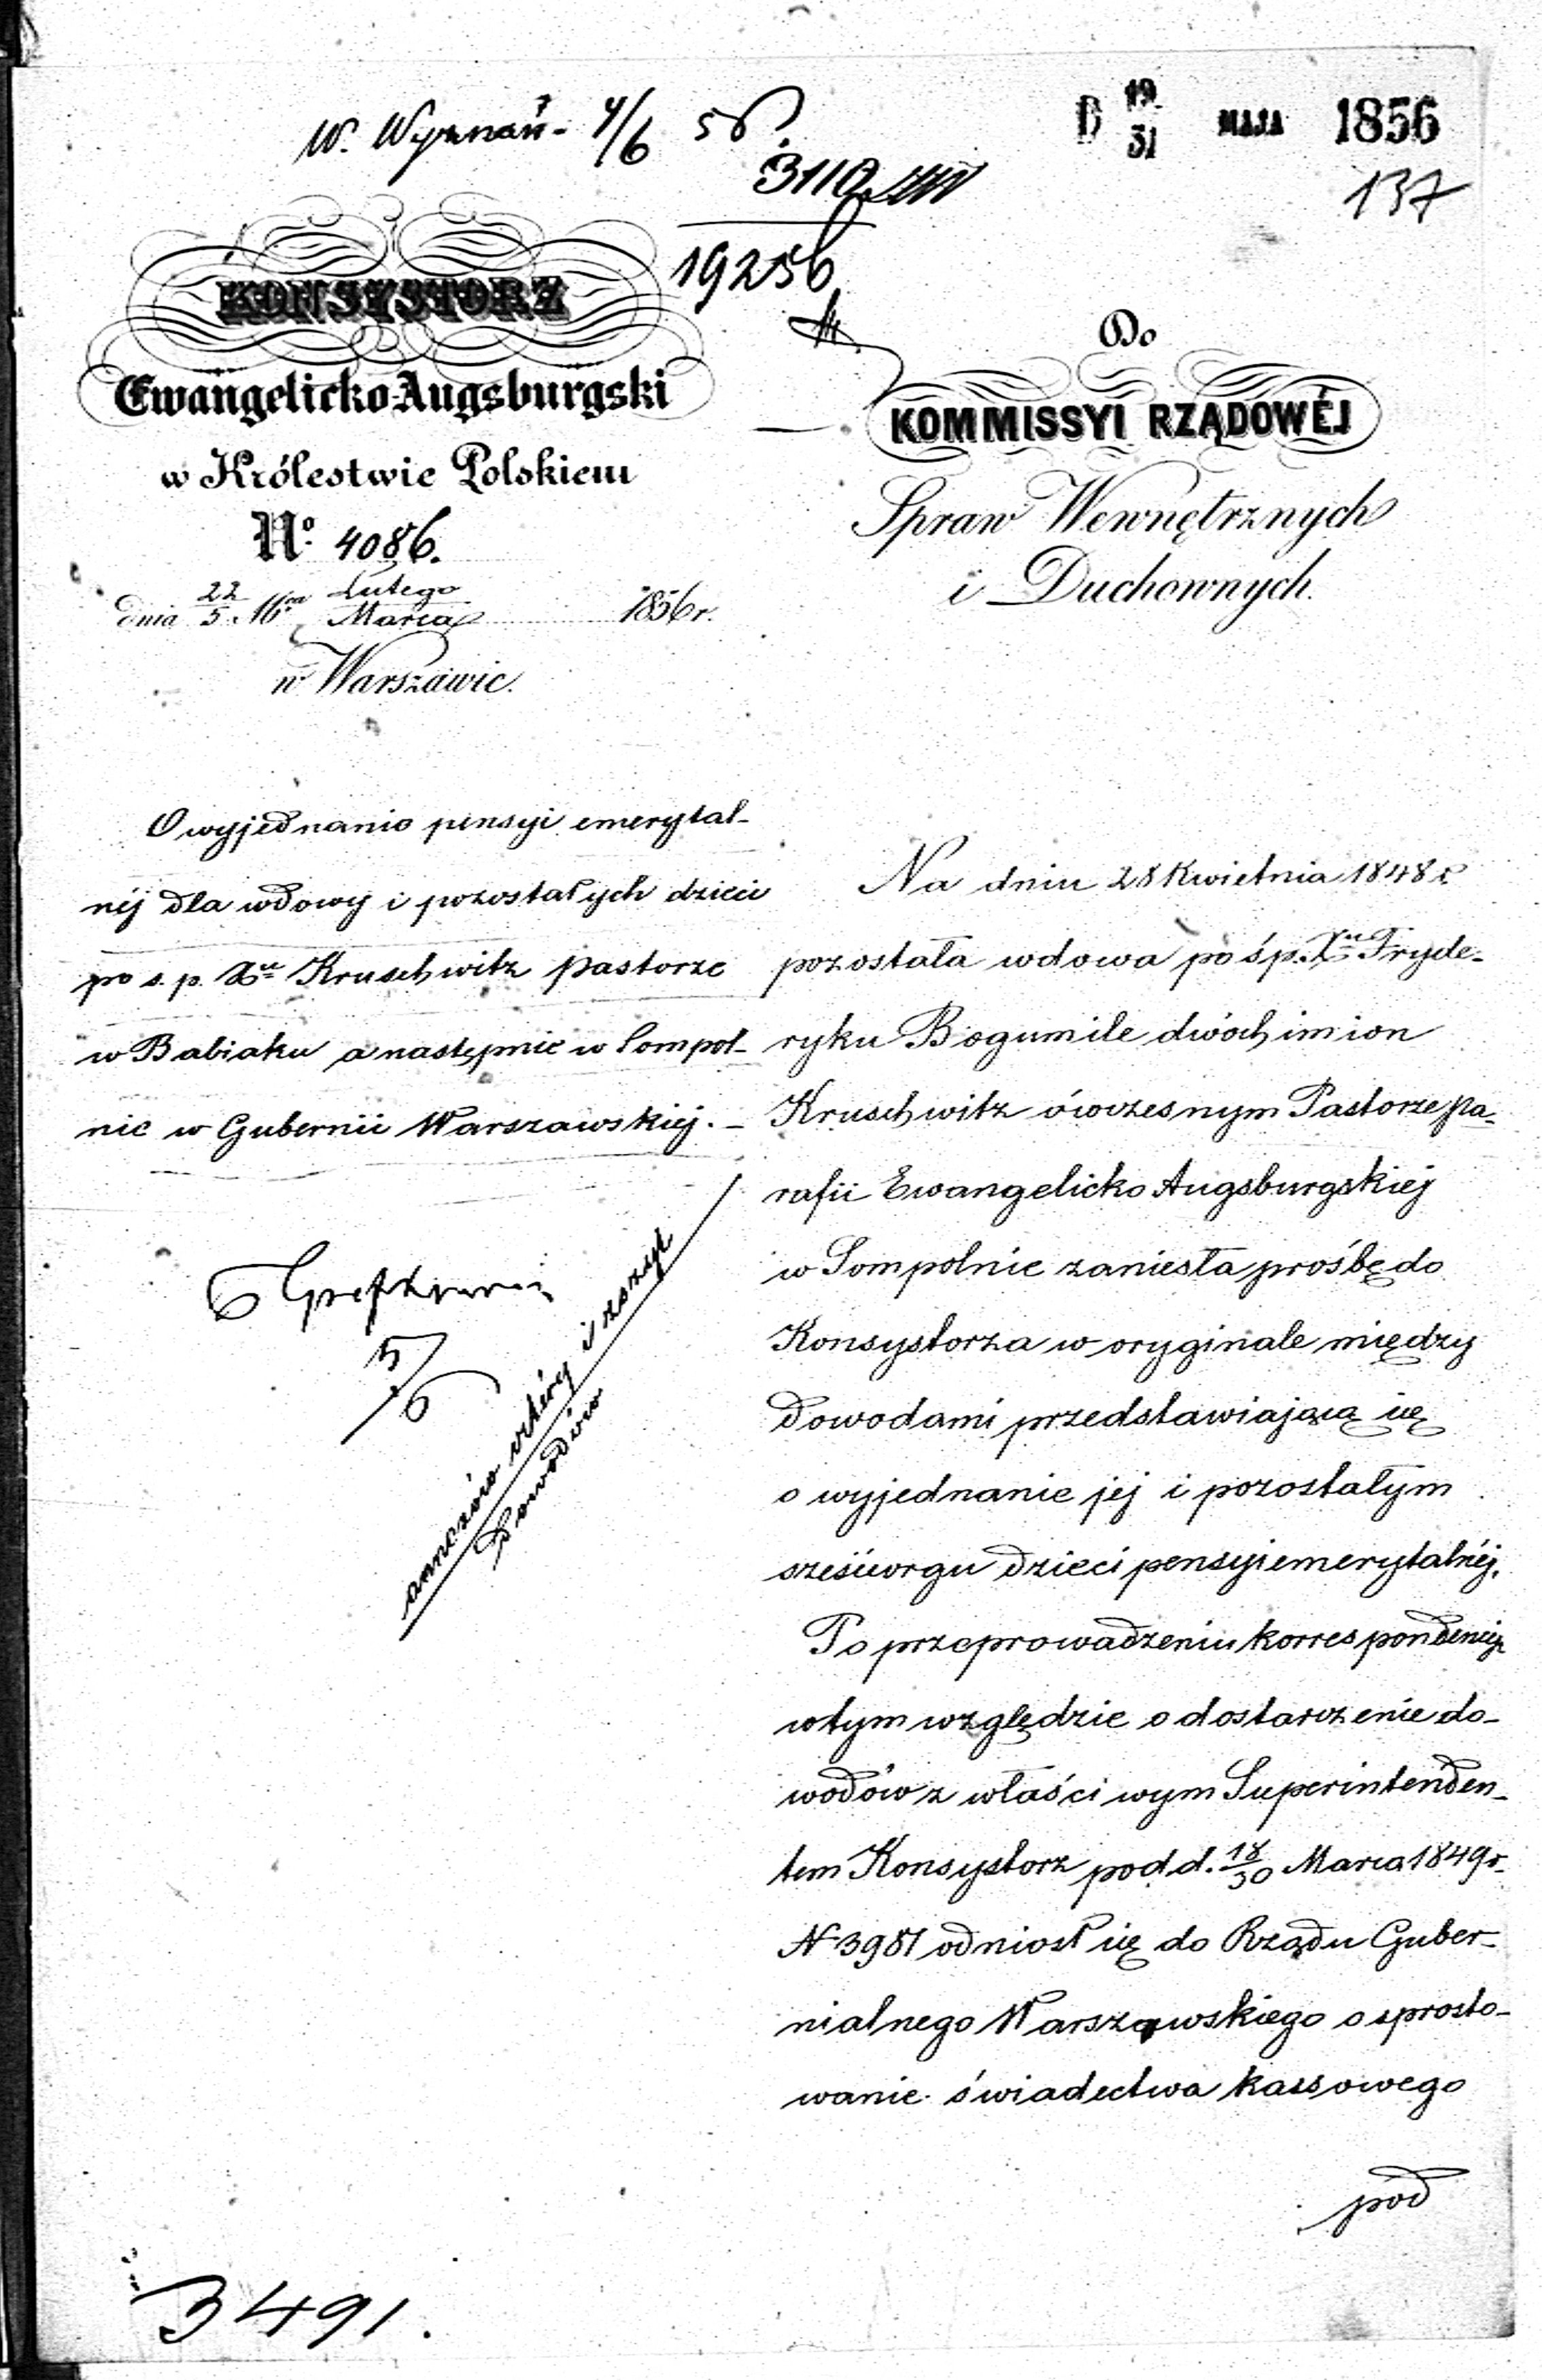 W. Wyznań - 4/6 56
D 19/31 MAJA 1856
137
3110
19256
KONSYSTORZ
Ewangelicko-Augsburgski
w Królestwie Polskiem
No. 4086.
dnia 22/5 Mca Lutego/Marca 1856 r.
w Warszawie.
Do
KOMMISSYI RZĄDOWÉJ
Spraw Wewnętrznych
i Duchownych.
O wyjednanie pensyi emerytal-
néj dla wdowy i pozostałych dzieci
po s. p. Xu Kruschwitz pastorze
w Babiaku a następnie w Sompol-
nie w Gubernii Warszawskiej. -
5/6
i zszyt
dowodów
Na dniu 28 Kwietnia 1848 r.
pozostała wdowa po śp. Xu Fryde-
ryku Bogumile dwóch imion
Kruschwitz ówczesnym Pastorze Pa-
rafii Ewangelicko Augsburgskiej
w Sompolnie zaniesła prośbę do
Konsystorza w oryginale między
dowodami przedstawiającą się
o wyjednanie jej i pozostałym
sześciorgu dzieci pensyi emerytalnéj.
Po przeprowadzeniu korrespondencyi
w tym względzie o dostarczenie do-
wodów z właściwym Superintenden-
tem Konsystorz pod d. 18/30 Marca 1849 r.
N 3981 odniosł się do Rządu Guber-
nialnego Warszawskiego o sprosto-
wanie świadectwa kassowego
pod
3491.